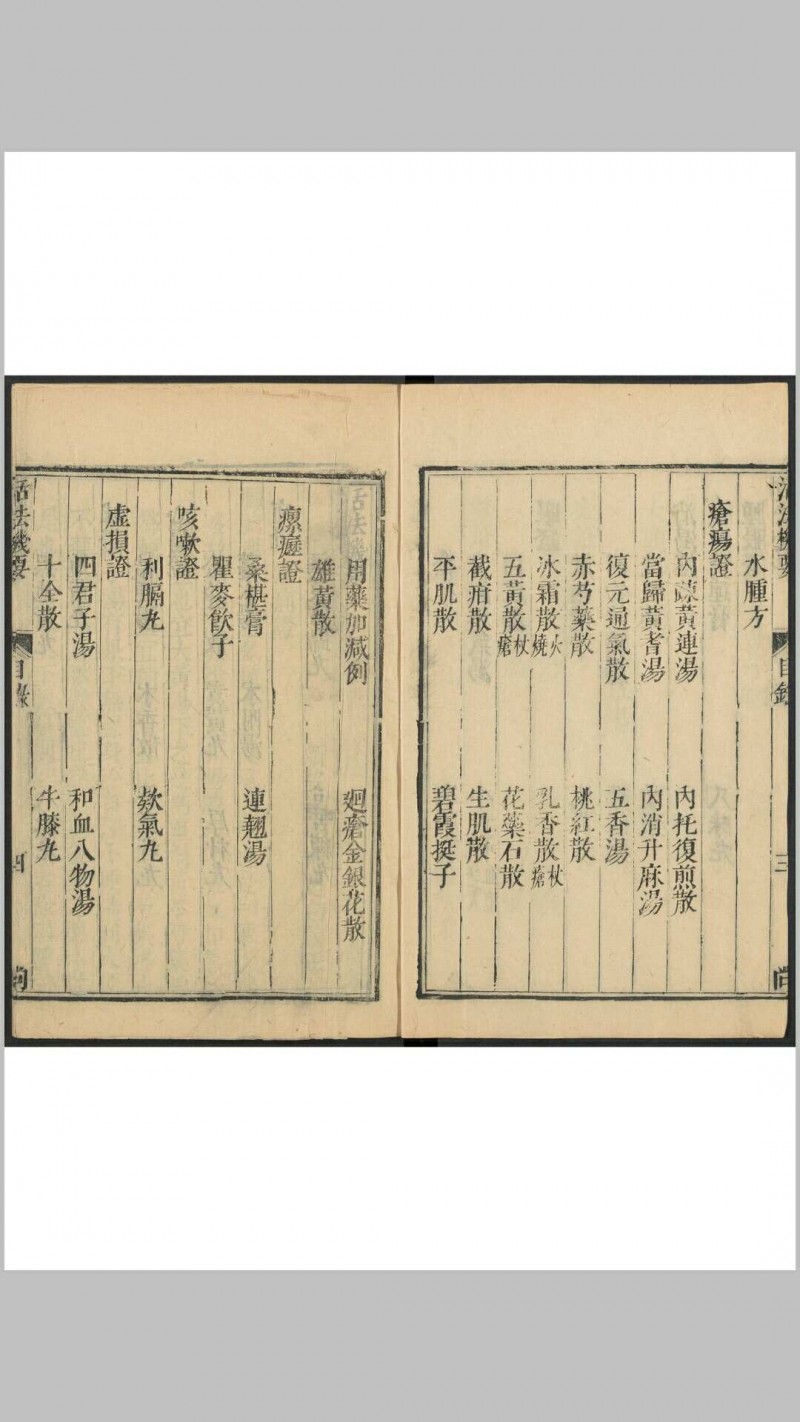 活法機要 目錄 三 尚
水腫方
瘡瘍證
內疎黃連湯 內托復煎散
當歸黃耆湯 內消升麻湯
復元通氣散 五香湯
赤芍藥散 桃紅散
冰霜散火燒 乳香散杖瘡
五黃散杖瘡 花藥石散
截疳散 生肌散
平肌散 碧霞挺子
用藥加減例 廻瘡金銀花散
雄黃散
瘰癧證
桑椹膏 連翹湯
瞿麥飲子
咳嗽證
利膈丸 欬氣丸
虛損證
四君子湯 和血八物湯
十全散 牛膝丸
活法機要 目錄 四